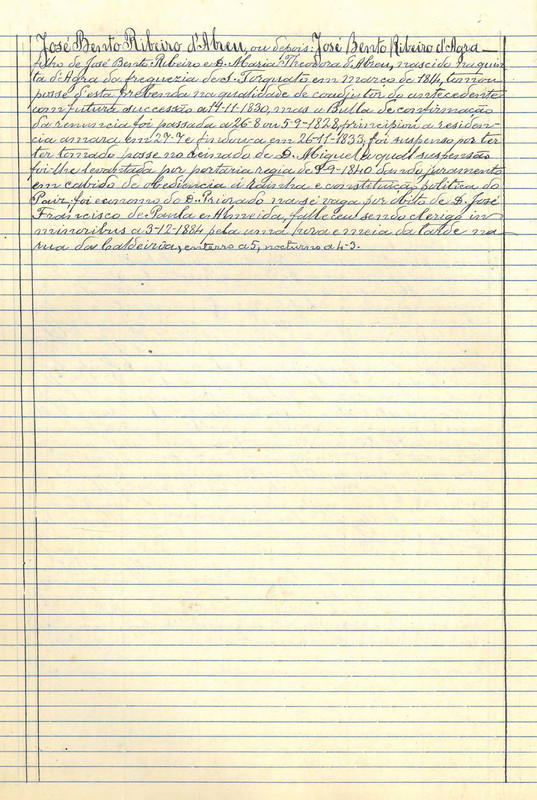 José Bento Ribeiro d'Abreu, ou depois: José Bento Ribeiro d'Agra —
filho de José Bento Ribeiro e D. Maria Theodora d'Abreu, nascido na quin-
ta d'Agra da freguezia de S. Torquato em março de 1814, tomou
posse d'esta prebenda na qualidade de coadjutor do antecedente
com futura successão a 14-11-1830, mas a Bulla de confirmação
da renuncia foi passada a 26-8 ou 5-9-1828, principiou a residen-
cia amara em 27-7 e findou-a em 26-11-1833, foi suspenso por ter
ter tomado posse no reinado de D. Miguel a qual suspensão
foi-lhe levantada por portaria regia de -9-1840 dando juramento
em cabido de obediencia á rainha e constituição politica do
Paiz, foi economo do D. Priorado na sé vaga por obito de D. José
Francisco de Paula e Almeida, falleceu sendo clerigo in
minoribus a 3-12-1884 pela uma hora e meia da tarde na
rua da Caldeirôa, enterro a 5, nocturno a 4-3.